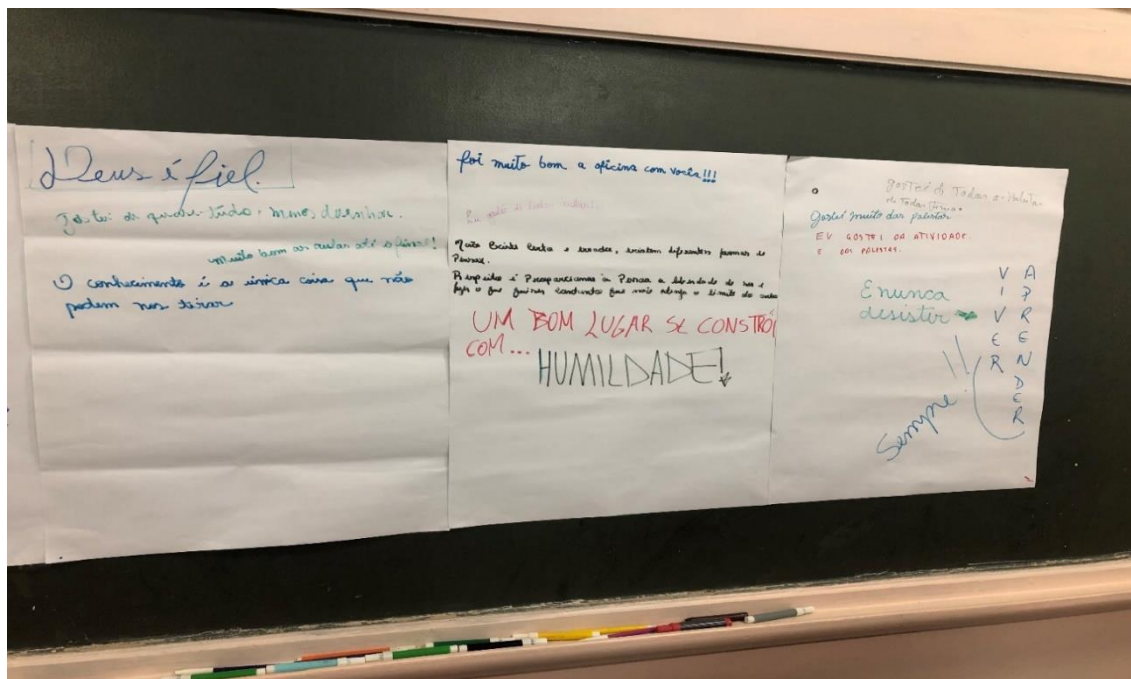 Deus é fiel.
Gostei de quase tudo, menos desenhar.
muito bom as aulas até o final!
O conhecimento é a única coisa que não
podem nos tirar
foi muito bom a oficina com vocês!!!
Não Existe Certo e errado, existem diferentes formas de
Pensar.
Respeito é Proporcionar a Pessoa a liberdade de ser e
faça o que quiser contanto que não
UM BOM LUGAR SE CONSTRÓI
COM...
HUMILDADE!
gostei de Todas
de Todas
Gostei muito das palestas
EU GOSTEI DA ATIVIDADE.
E DOS PALESTAS.
E nunca
desistir
VIVER
APRENDER
Sempre!!